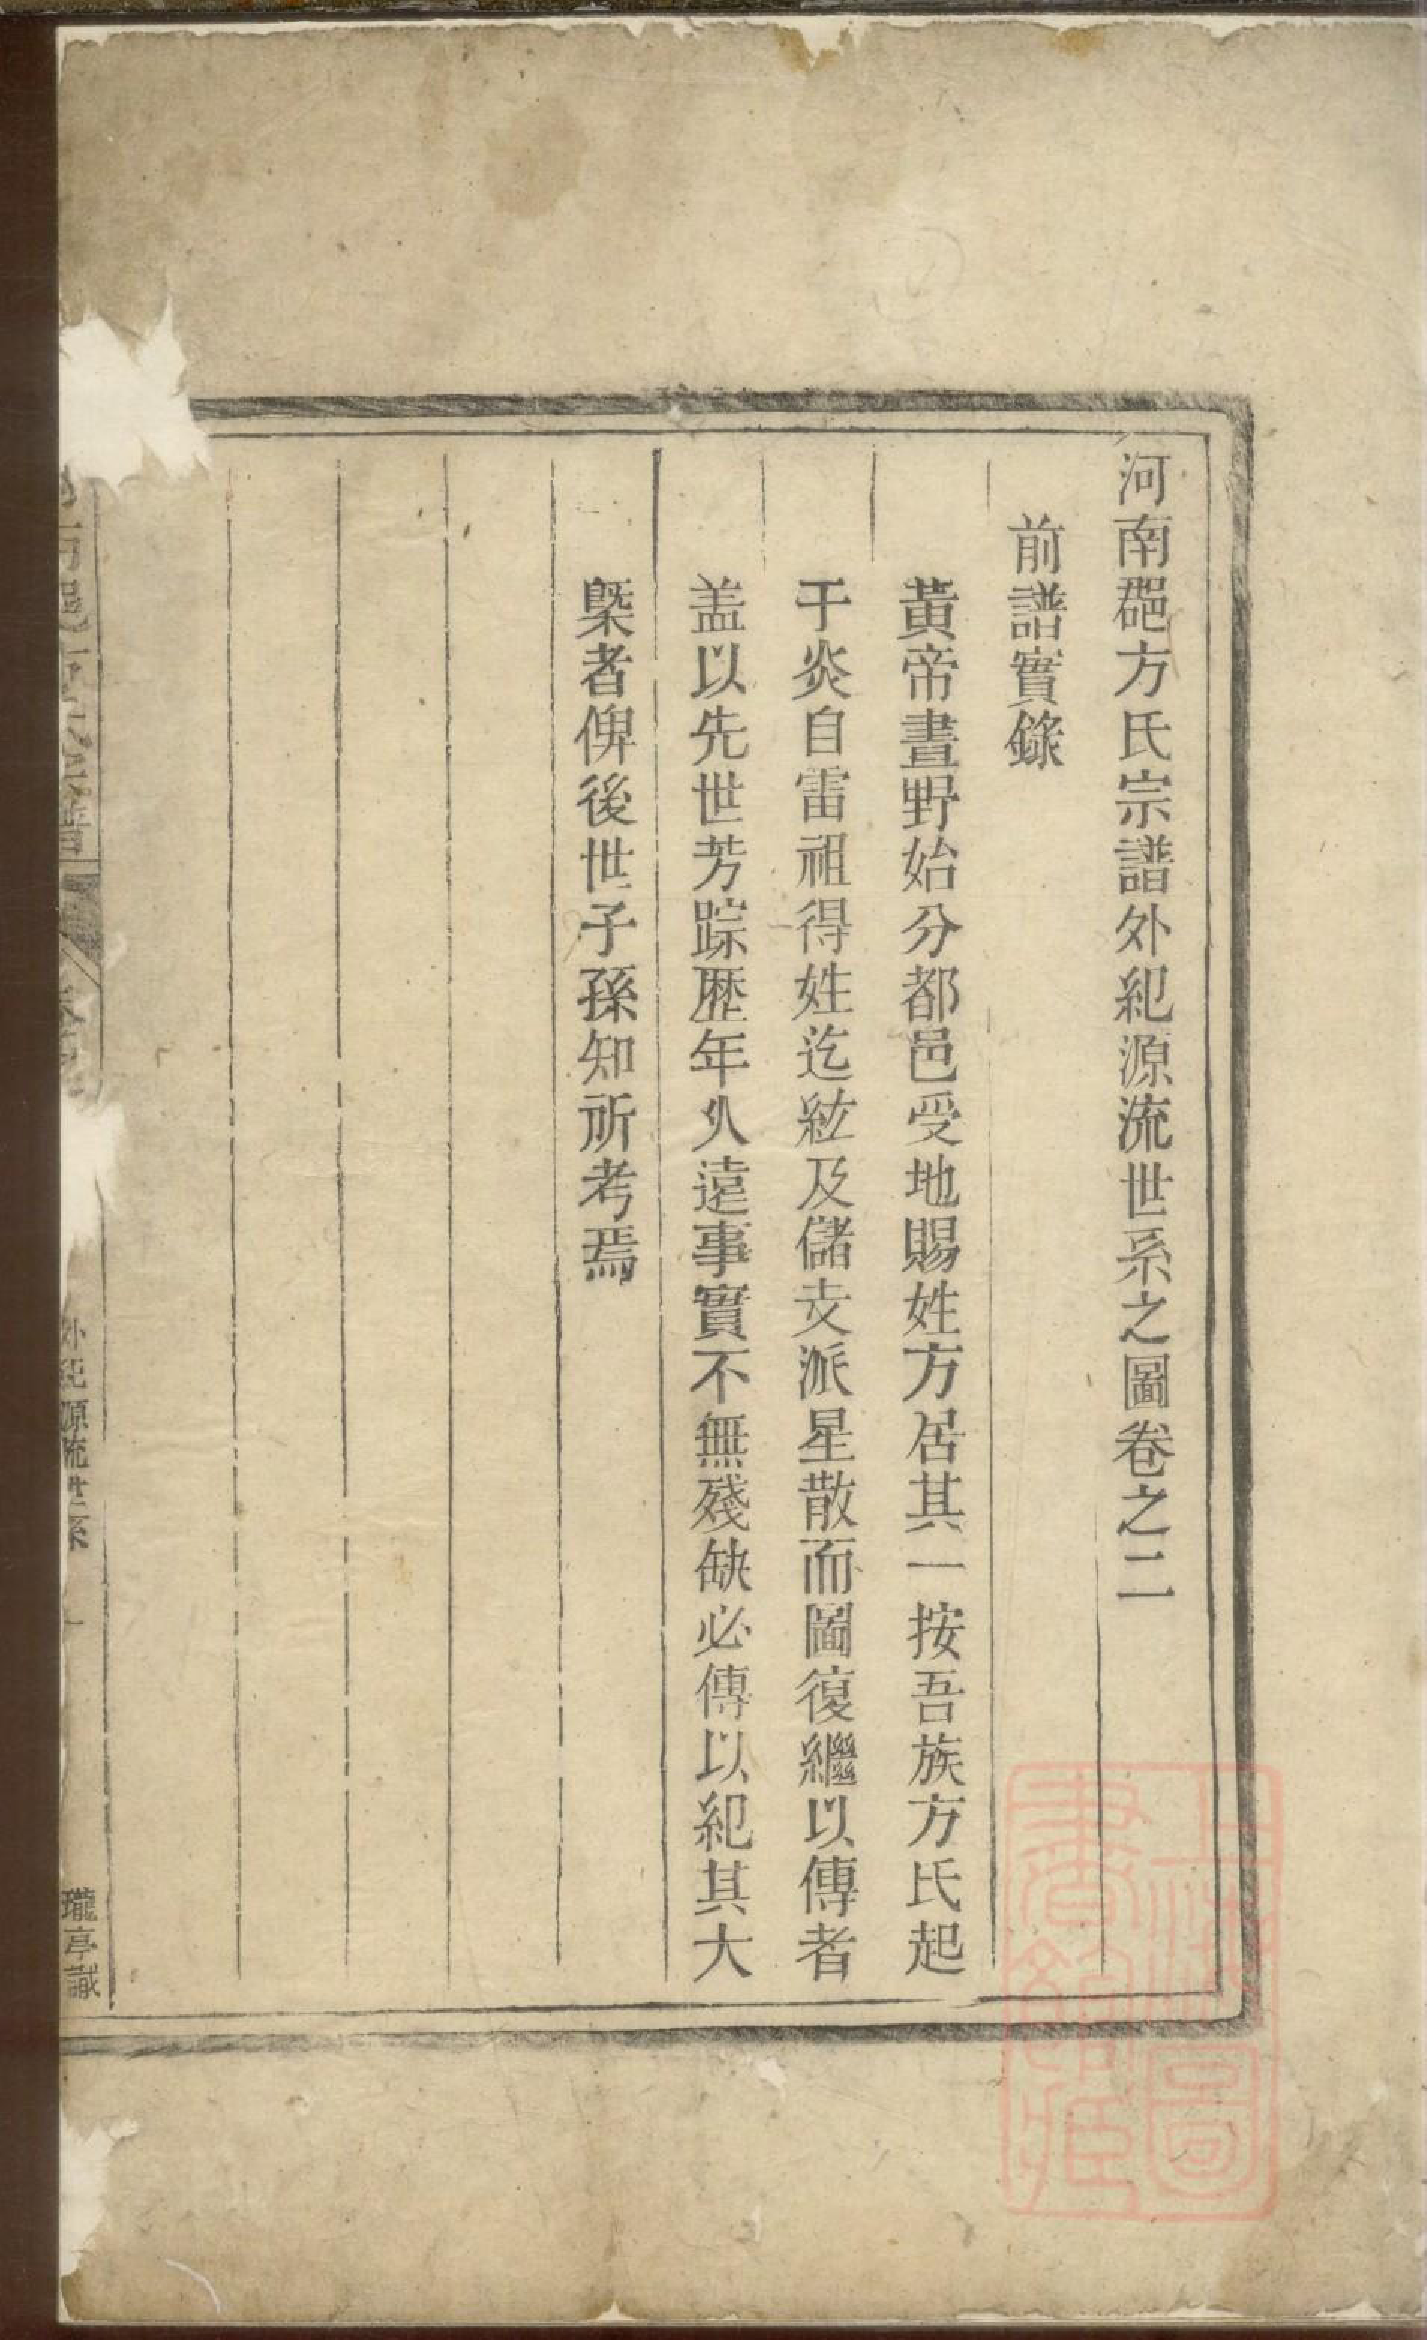 河南郡方氏宗譜外紀源流世系之圖卷之二
前譜實錄
黃帝畫野始分都邑受地賜姓方居其一按吾族方氏起
于炎自雷祖得姓迄紘及儲支派星散而圖復繼以傳者
盖以先世芳踪歷年久遠事實不無殘缺必傳以紀其大
槩者俾後世子孫知所考焉
方氏宗譜
外紀源流世系
一
瓏亭識
上海圖書館藏